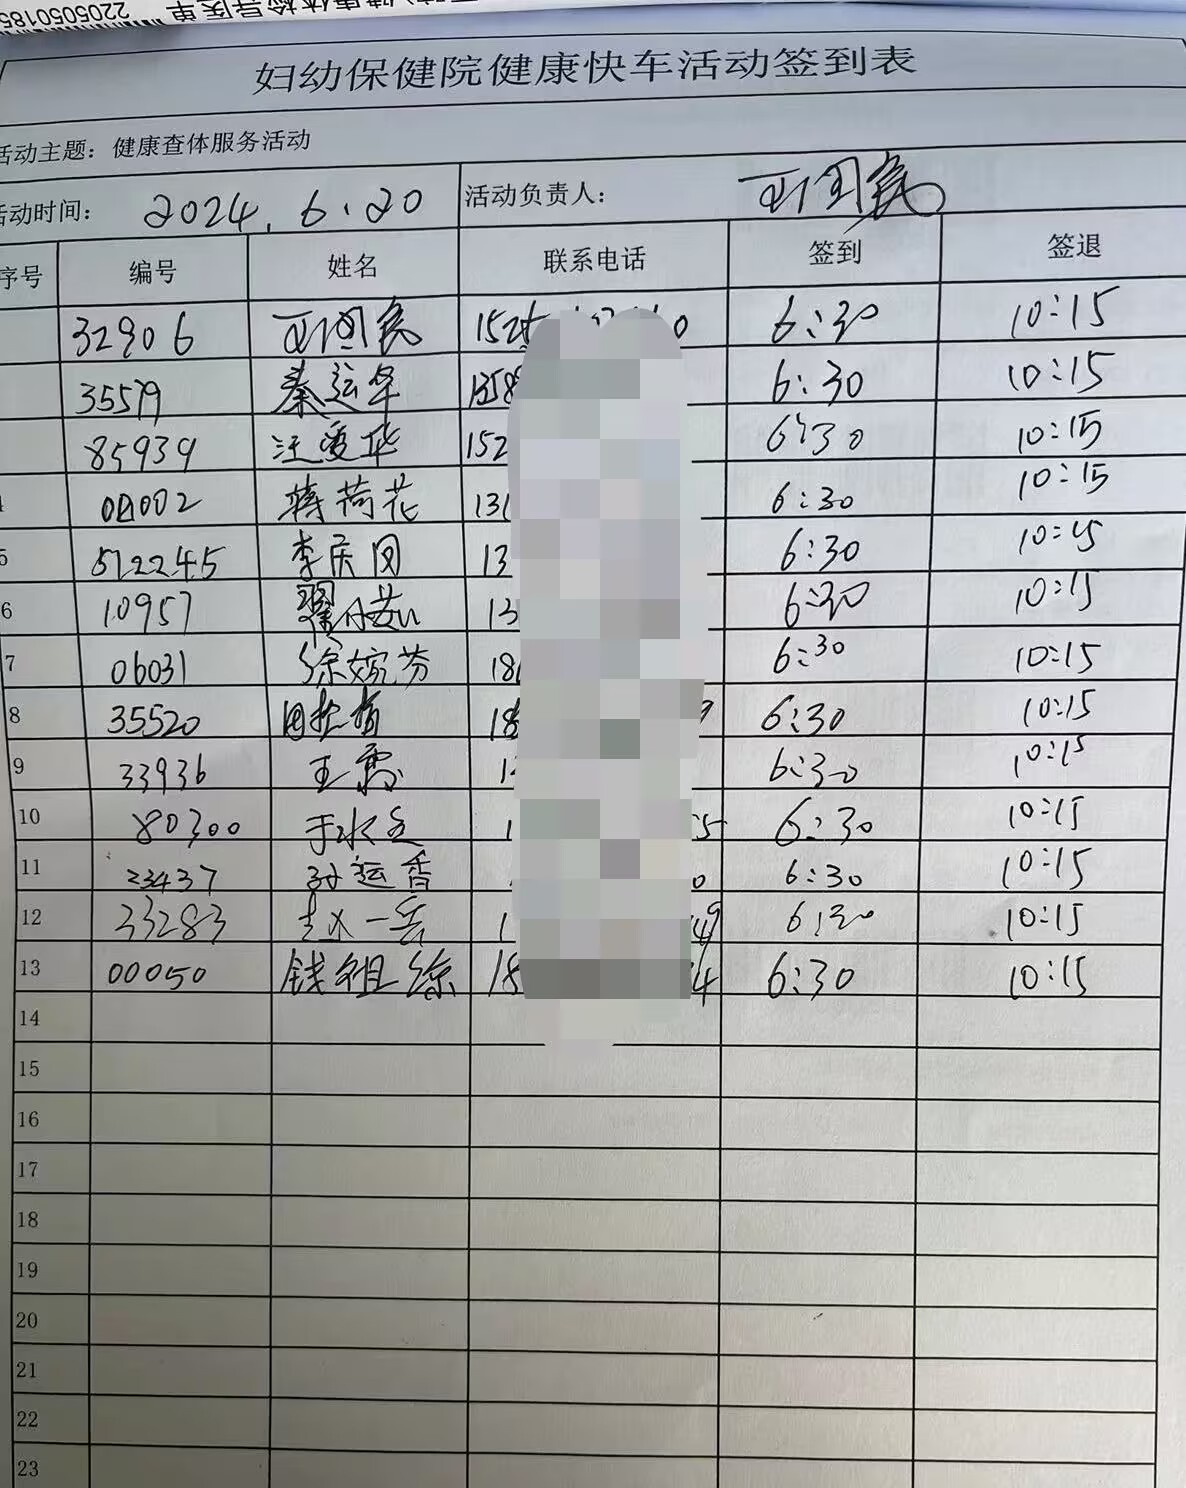 2205050185
健康体检导医单
妇幼保健院健康快车活动签到表
活动主题：健康查体服务活动
活动时间： 2024.6.20 活动负责人：
序号 编号 姓名 联系电话 签到 签退
32906 152 0 6:30 10:15
35579 秦运华 1358 6:30 10:15
85939 汪爱华 152 6:30 10:15
4 蒋荷花 131 6:30 10:15
5 6:30 10:15
6 10957 13 6:30 10:15
7 06031 徐婉芬 18 6:30 10:15
8 35520 18 9 6:30 10:15
9 33936 王霞 1 6:30 10:15
10 80300 于水 1 5 6:30 10:15
11 23437 孙运香 0 6:30 10:15
12 33283 赵一兵 1 49 6:30 10:15
13 00050 钱祖徐 18 4 6:30 10:15
14
15
16
17
18
19
20
21
22
23